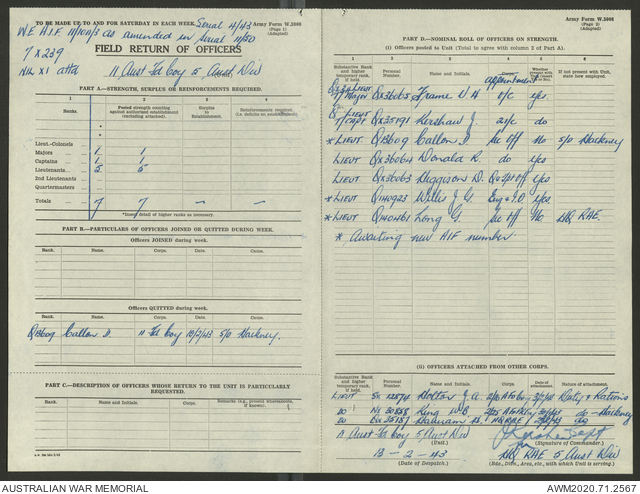 TO BE MADE UP TO AND FOR SATURDAY IN EACH WEEK. Serial 4/43
Army Form W.3008
(Page 1)
(Adapted)
W.E. A.I.F. 11/10A/3 as amended in Serial 11/50
7 X 239
FIELD RETURN OF OFFICERS
11 Aust Fd Coy 5 Aust Div
PART A.—STRENGTH, SURPLUS OR REINFORCEMENTS REQUIRED.
1 2 3 4
Ranks. Posted strength counting against authorised establishment (excluding attached). Surplus to Establishment. Reinforcements required (i.e. deficits on establishment)
Lieut.-Colonels
Majors 1 1
Captains 1 1
Lieutenants 5 5
2nd Lieutenants
Quartermasters
Totals 7 7 — —
*Insert detail of higher ranks as necessary.
PART B.—PARTICULARS OF OFFICERS JOINED OR QUITTED DURING WEEK.
Officers JOINED during week.
Rank. Name. Corps. Date. From.
Officers QUITTED during week.
Rank. Name. Corps. Date.
QB609 Callon D. 11 Fd Coy 10/2/43 S/O Hackney.
PART C.—DESCRIPTION OF OFFICERS WHOSE RETURN TO THE UNIT IS PARTICULARLY REQUESTED.
Rank. Name and Initials. Corps. Remarks (e.g., present whereabouts, if known).
Army Form W.3008
(Page 2)
(Adapted)
PART D.—NOMINAL ROLL OF OFFICERS ON STRENGTH.
(i) Officers posted to Unit (Total to agree with column 2 of Part A).
1 2 3 4 5 6
Substantive Rank and higher temporary rank, if held. Personal Number. Name and Initials. appointment If not present with Unit, state how employed.
Major QX36065 Frame V H o/c yes
Capt QX35191 Kershaw J. 2i/c do
* LIEUT QB609 Callon D. Sec Off No S/O Hackney
LIEUT QX36064 Donald R. do yes
LIEUT QX36063 Higgison D. yes
* LIEUT Q140925 Willis J G. yes.
* LIEUT Q140461 Long G. Sec Off No HQ RAE.
* Awaiting new AIF number.
(ii) OFFICERS ATTACHED FROM OTHER CORPS.
Substantive Rank and higher temporary rank, if held. Personal Number. Name and Initials. Corps. Date of attachment. Nature of attachment.
LIEUT SX 12874 Bolton J A. Duty & Rations
DO NX 30858 King W B. do - Hackney
DO do
11 Aust Fd Coy 5 Aust Div
(Unit.) (Signature of Commander.)
13 - 2 - 43 HQ RAE 5 Aust Div
(Date of Despatch.) (Bde., Divn., Area, etc., with which Unit is serving.)
AUSTRALIAN WAR MEMORIAL
AWM2020.71.2567